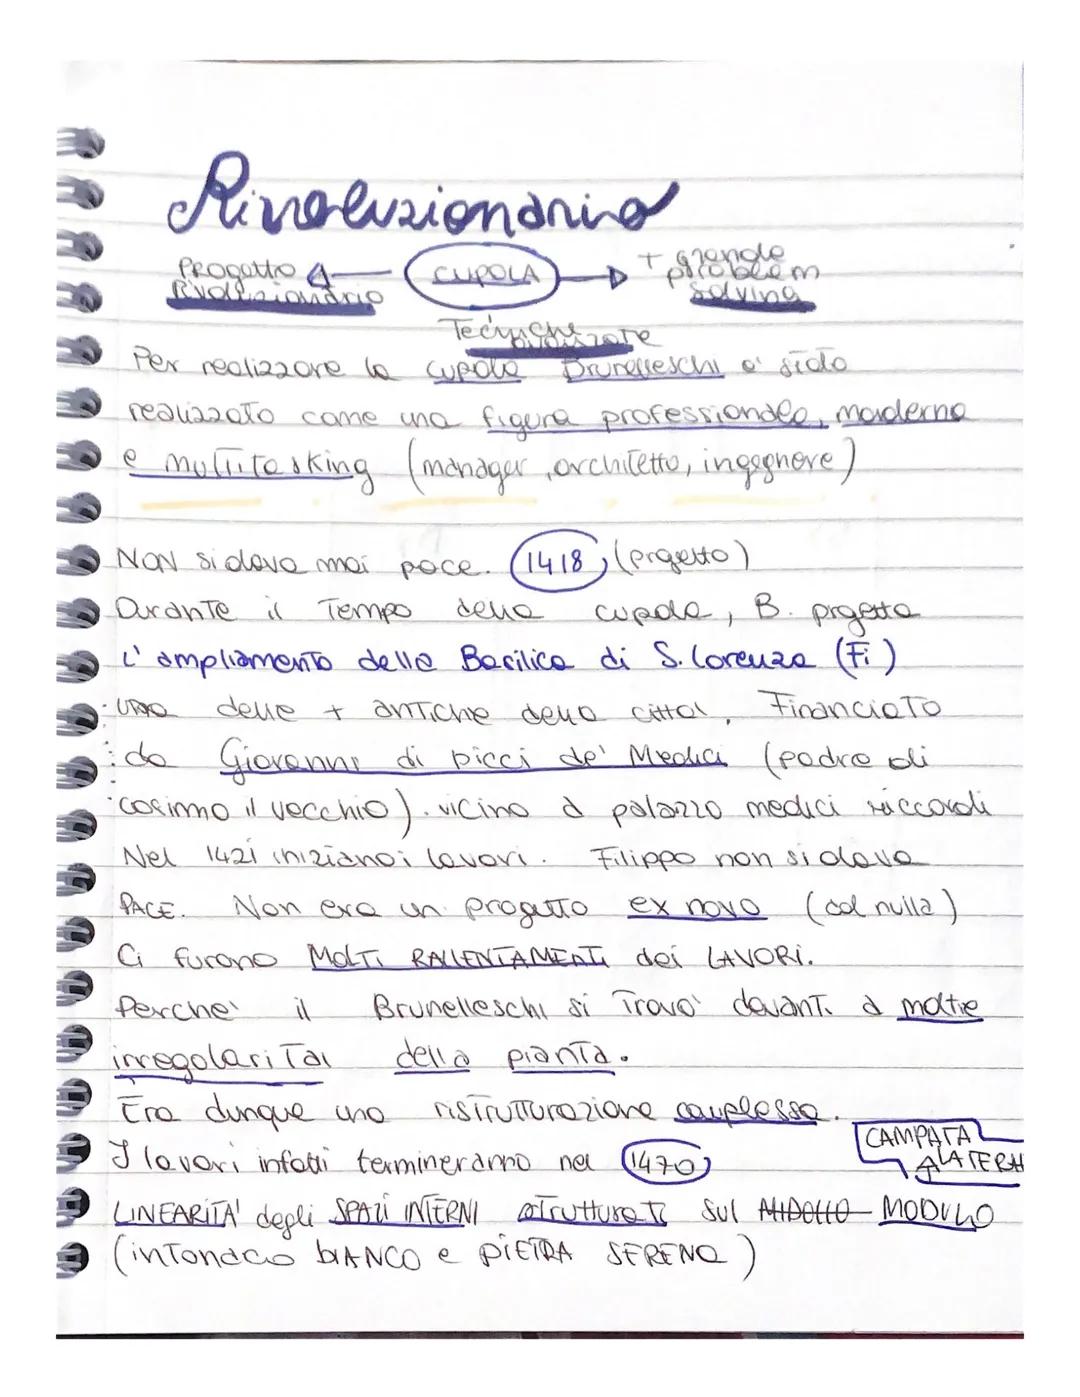 Rivoluzionario
Progetto Rivoluzionario ← CUPOLA → + grande problem solving
Tecniche
Per realizzare la cupola Brunelleschi e' stato
realizzato come una figura professionale, moderna
e multitasking (manager, architetto, ingegnere)
NON si dava mai pace. 1418, (progetto)
Durante il Tempo della cupola, B. prgetta
L' ampliamento della Basilica di S. Lorenzo (Fi)
una delle + antiche della citta', Financiato
da Giovanni di bicci de' Medici (padre di
cosimo il vecchio). vicino a palazzo medici riccardi
Nel 1421 iniziano i lavori. Filippo non si dava
PACE. Non era un progetto ex novo (dal nulla)
Ci furono MOLTI RALLENTAMENTI dei LAVORI.
Perche' il Brunelleschi si Trovo' davanti a moltre
irregolarita' della pianta.
Era dunque una ristrutturazione complessa.
I lavori infatti termineranno nel 1470,
CAMPATA
LATERA
LINEARITA' degli SPAZI INTERNI strutturati sul MODULO
(intonaco bIANCO e PIETRA SERENA)